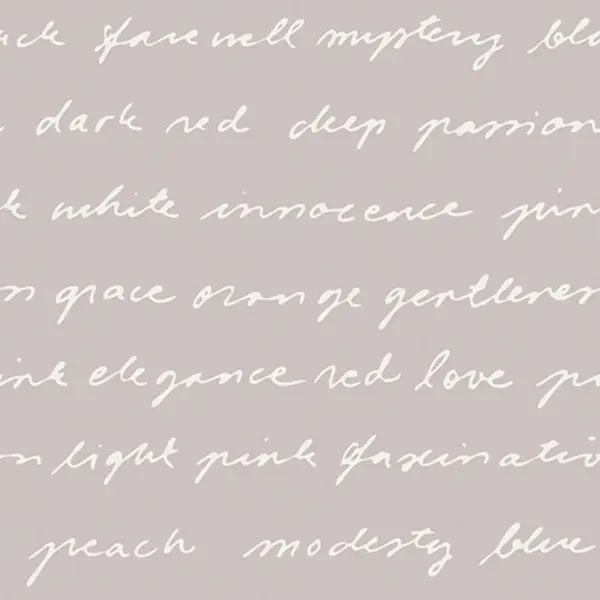 ack farewell mystery bla
dark red deep passion
k white innocence pin
n grace orange gentlenes
ink elegance red love pa
n light pink fascinatio
peach modesty blue